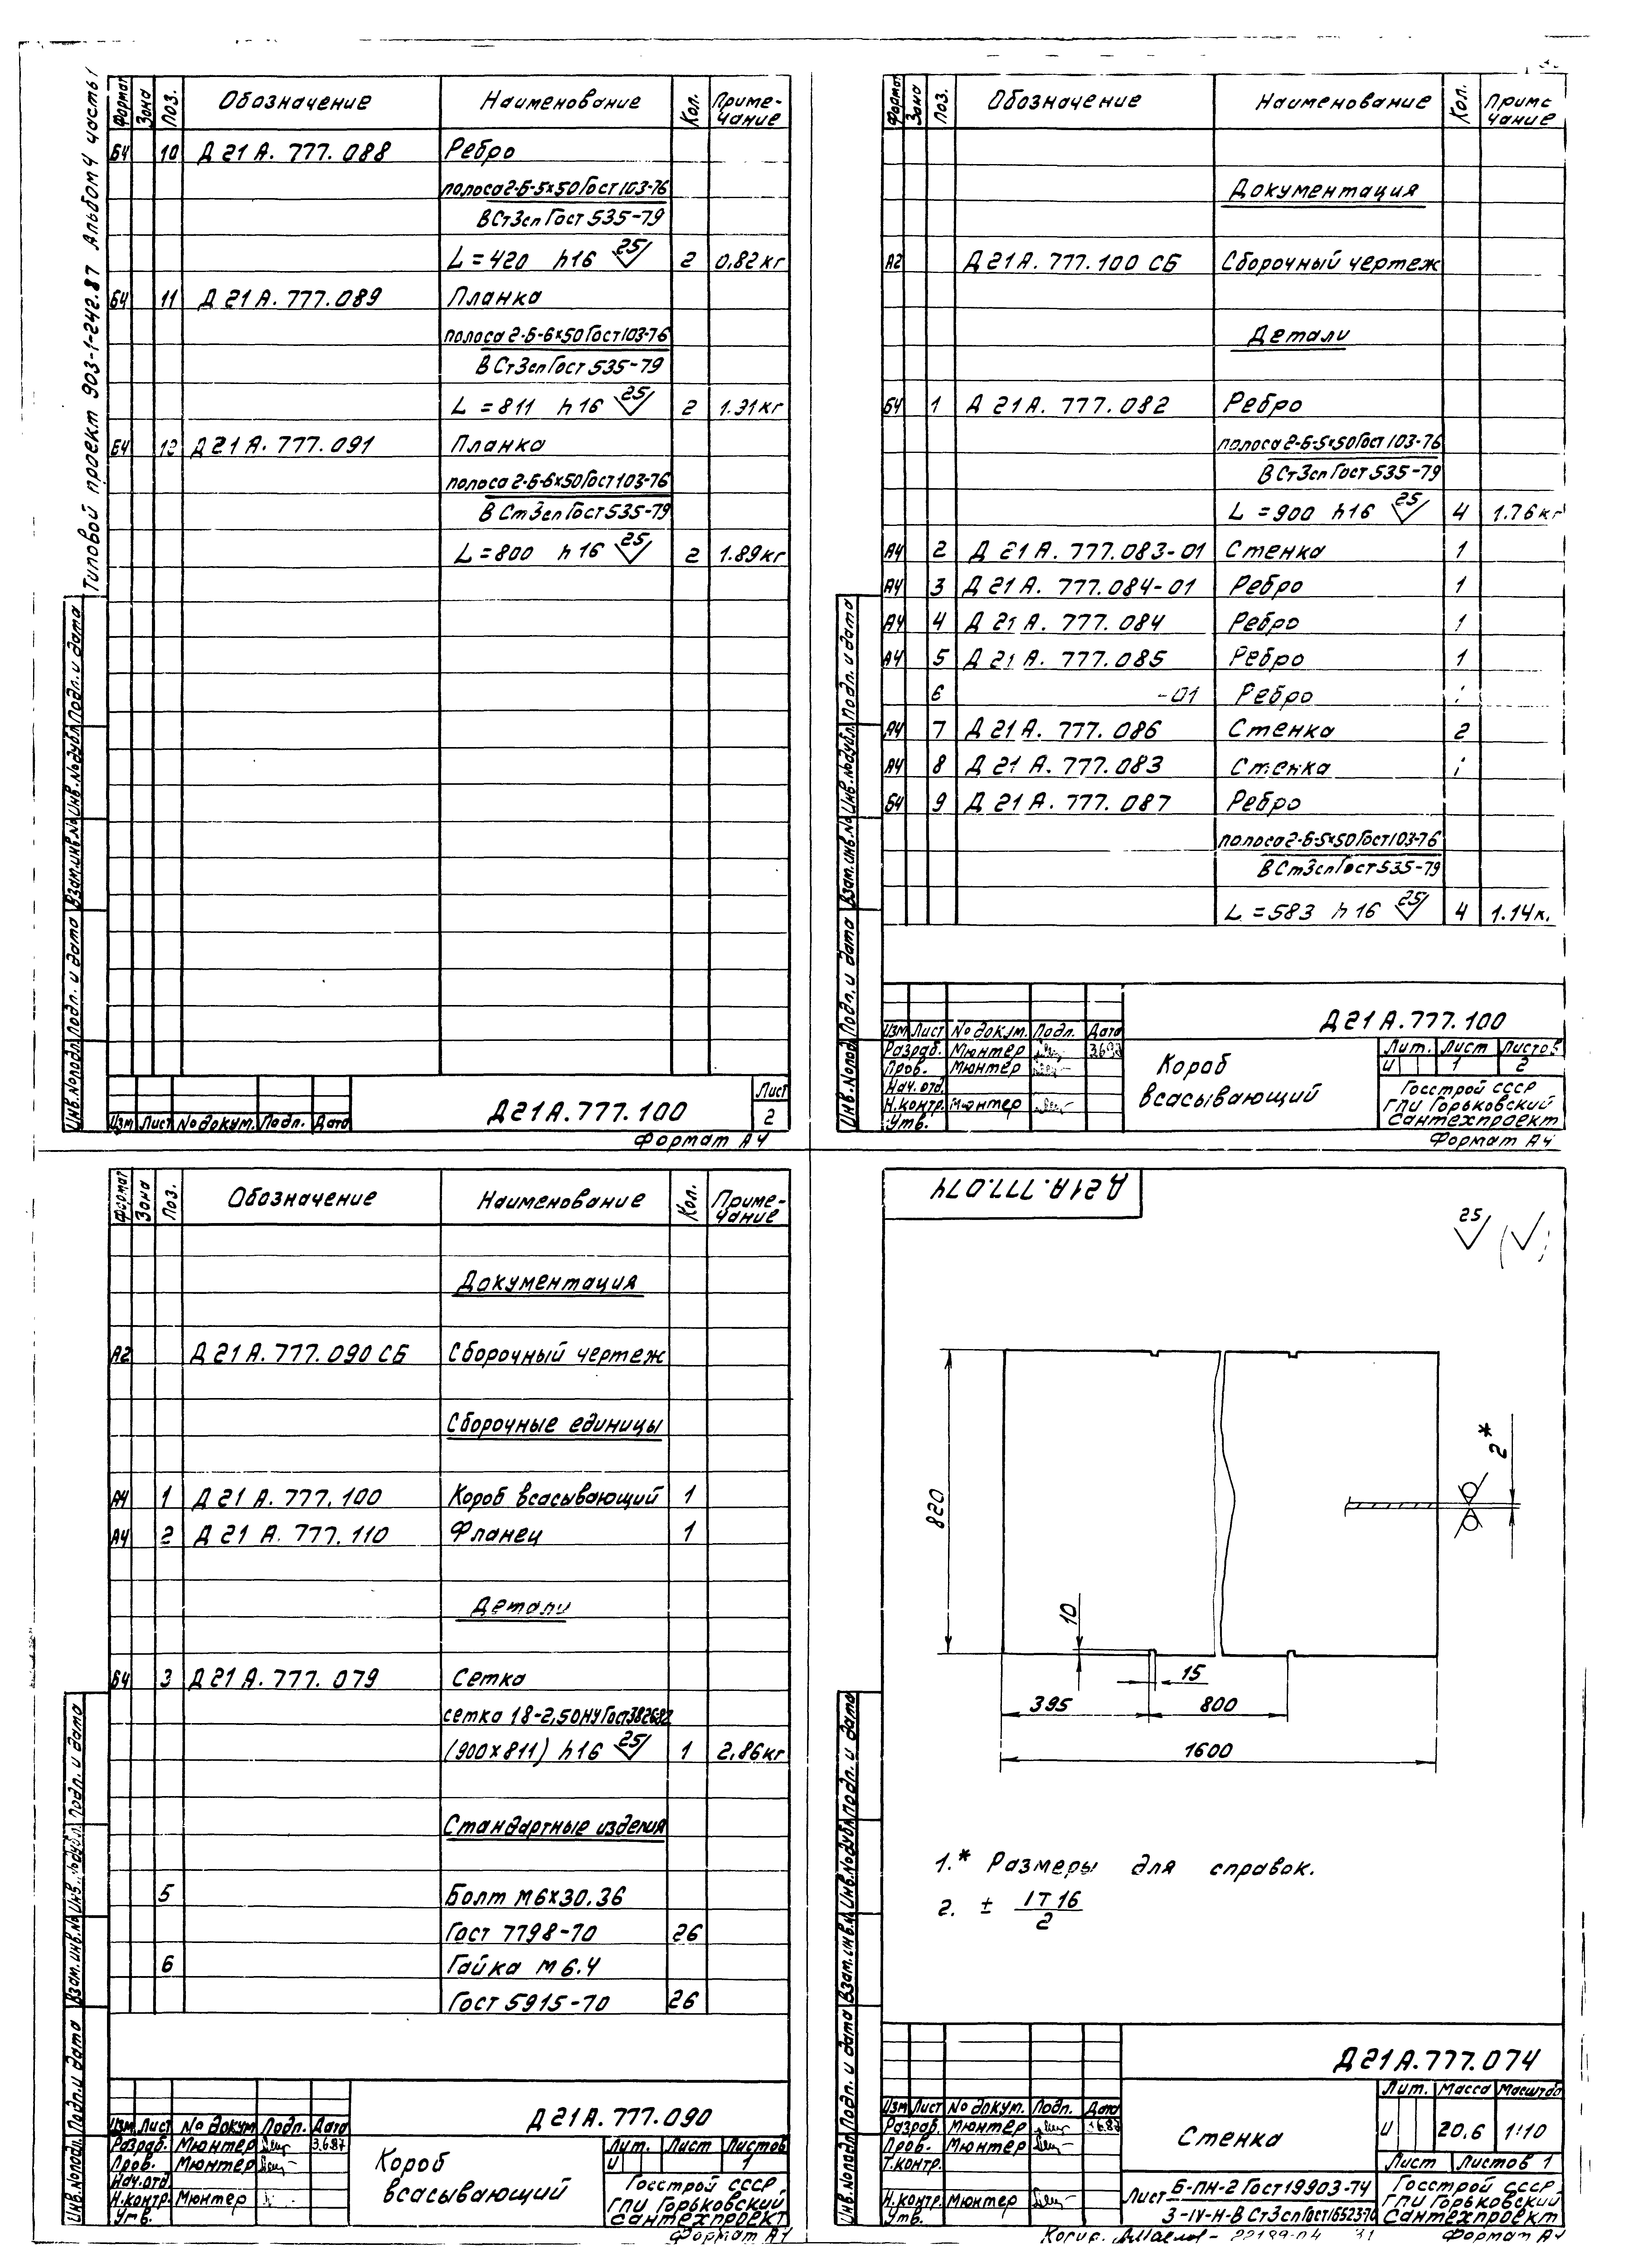 Типовой проект 903-1-242.87 Альбом 4 часть 1
Формат Зона Поз. Обозначение Наименование Кол. Приме-
чание
Б4 10 Д21А.777.088 Ребро
полоса 2-Б-5х50 Гост 103-76
ВСт3сп Гост 535-79
L=420 h16 25 2 0,82кг
Б4 11 Д21А.777.089 Планка
полоса 2-Б-6х50 Гост 103-76
ВСт3сп Гост 535-79
L=811 h16 25 2 1.31кг
Б4 12 Д21А.777.091 Планка
полоса 2-Б-6х50 Гост 103-76
ВСт3сп Гост 535-79
L=800 h16 25 2 1.89кг
Инв.№подл. Подп. и дата Взам.инв.№ Инв.№дубл. Подп. и дата
Изм Лист № докум. Подп. Дата
Д21А.777.100
Лист
2
Формат А4
Формат Зона Поз. Обозначение Наименование Кол. Приме
чание
Документация
А2 Д21А.777.100 СБ Сборочный чертеж
Детали
Б4 1 Д21А.777.082 Ребро
полоса 2-Б-5х50 Гост 103-76
ВСт3сп Гост 535-79
L=900 h16 25 4 1.76кг
А4 2 Д21А.777.083-01 Стенка 1
А4 3 Д21А.777.084-01 Ребро 1
А4 4 Д21А.777.084 Ребро 1
А4 5 Д21А.777.085 Ребро 1
6 -01 Ребро
А4 7 Д21А.777.086 Стенка 2
А4 8 Д21А.777.083 Стенка
Б4 9 Д21А.777.087 Ребро
полоса 2-Б-5х50 Гост 103-76
ВСт3сп Гост 535-79
L=583 h16 25 4 1.14к.
Инв.№подл. Подп. и дата Взам.инв.№ Инв.№дубл. Подп. и дата
Д21А.777.100
Изм Лист № докум. Подп. Дата
Разраб. Мюнтер 3.6.87
Пров. Мюнтер
Нач.отд.
Н.контр. Мюнтер
Утв.
Короб
всасывающий
Лит. Лист Листов
И 1 2
Госстрой СССР
ГПИ Горьковский
Сантехпроект
Формат А4
Формат Зона Поз. Обозначение Наименование Кол. Приме-
чание
Документация
А2 Д21А.777.090 СБ Сборочный чертеж
Сборочные единицы
А4 1 Д21А.777.100 Короб всасывающий 1
А4 2 Д21А.777.110 Фланец 1
Детали
Б4 3 Д21А.777.079 Сетка
сетка 18-2,50НУ Гост 3826-82
(900х811) h16 25 1 2,86кг
Стандартные изделия
5 Болт М6х30.36
Гост 7798-70 26
6 Гайка М6.4
Гост 5915-70 26
Инв.№подл. Подп. и дата Взам.инв.№ Инв.№дубл. Подп. и дата
Д21А.777.090
Изм Лист № докум Подп. Дата
Разраб. Мюнтер 3.6.87
Пров. Мюнтер
Нач.отд
Н.контр. Мюнтер
Утв.
Короб
всасывающий
Лит. Лист Листов
И 1
Госстрой СССР
ГПИ Горьковский
Сантехпроект
Формат А4
Д21А.777.074
25
820
2*
10
15
395 800
1600
1.* Размеры для справок.
2. ± IT16
2
Инв.№подл. Подп. и дата Взам.инв.№ Инв.№дубл. Подп. и дата
Д21А.777.074
Изм Лист № докум. Подп. Дата
Разраб. Мюнтер 3.6.87
Пров. Мюнтер
Т.контр.
Н.контр. Мюнтер
Утв.
Стенка
Лит. Масса Масштаб
И 20,6 1:10
Лист Листов 1
Лист Б-ПН-2 Гост 19903-74
3-IV-Н-ВСт3сп Гост 16523-70
Госстрой СССР
ГПИ Горьковский
Сантехпроект
Копир. 22189-04 31 Формат А4